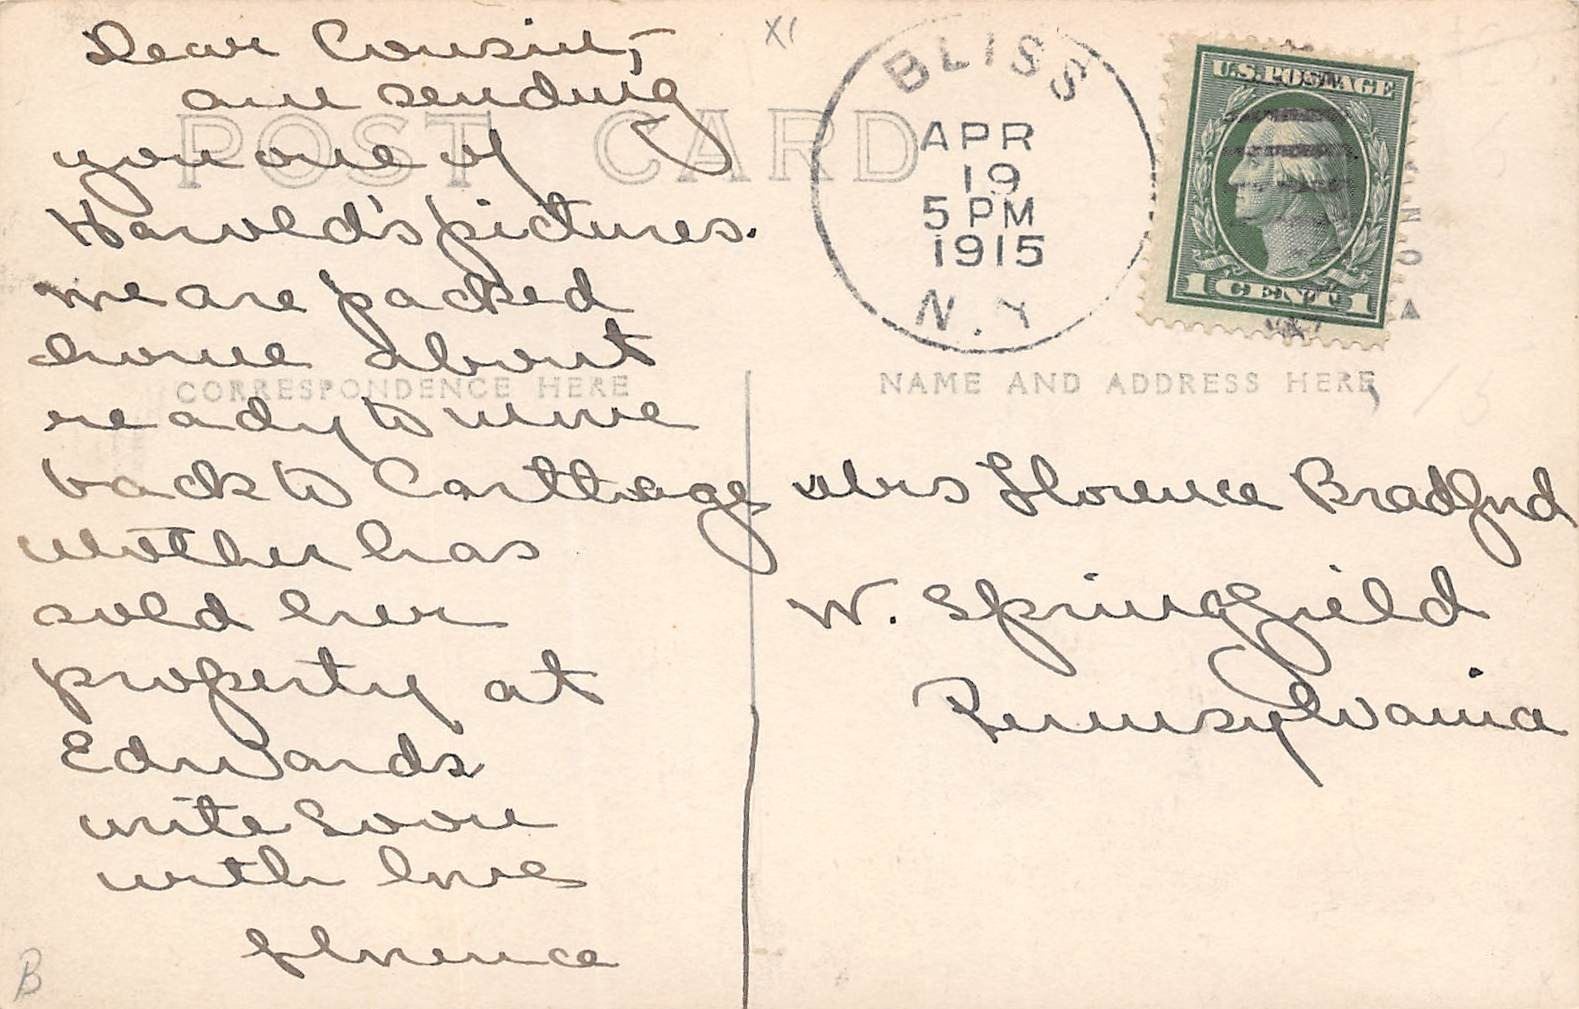 Dear Cousin,
am sending
you one of
Harold's pictures.
we are packed
home about
ready to move
back to Carthage
Mother has
sold her
property at
Edwards
write soon
with love
Florence
POST CARD
CORRESPONDENCE HERE
BLISS
APR
19
5 PM
1915
N.Y.
U.S. POSTAGE
1 CENT 1
NAME AND ADDRESS HERE
Mrs Florence Bradford
W. Springfield
Pennsylvania
XI
B